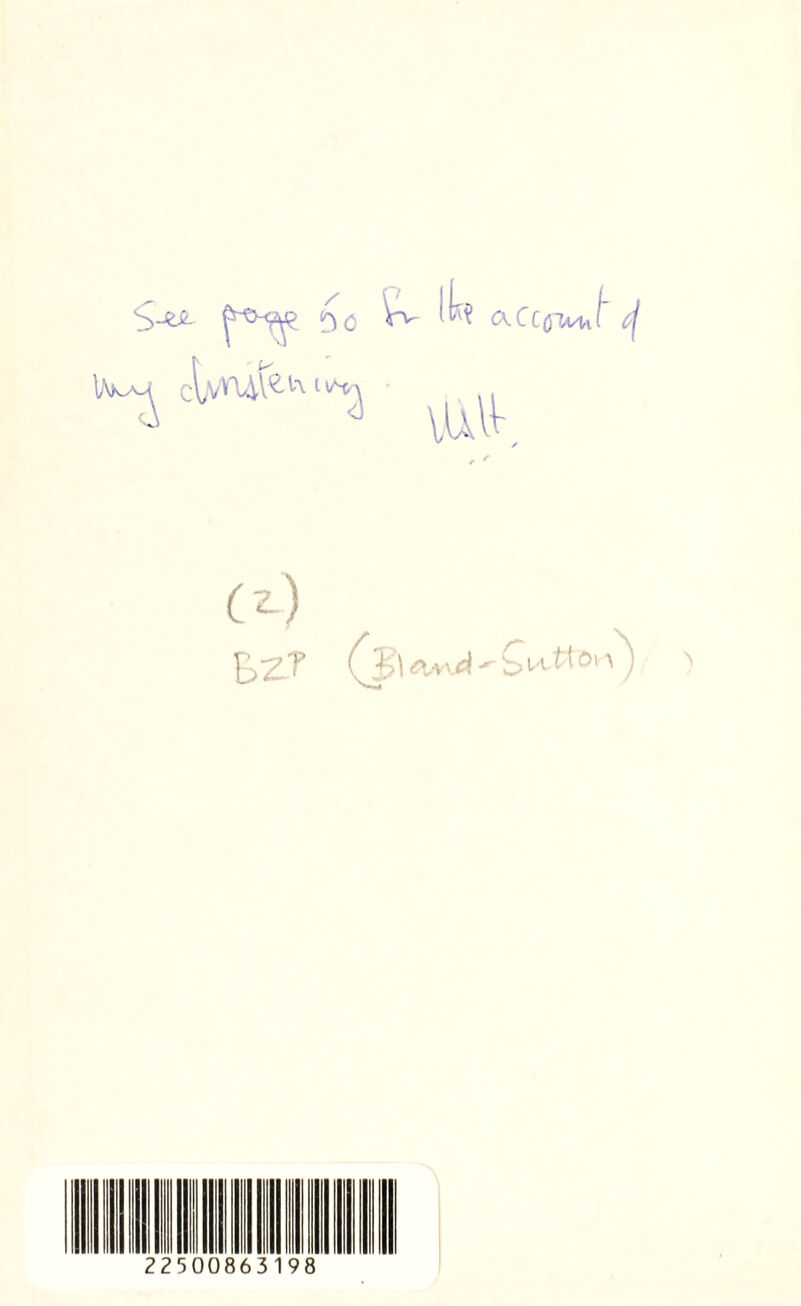 See page 60 for the account of
my christening.
(2)
BZP (Bland-Sutton)
22500863198